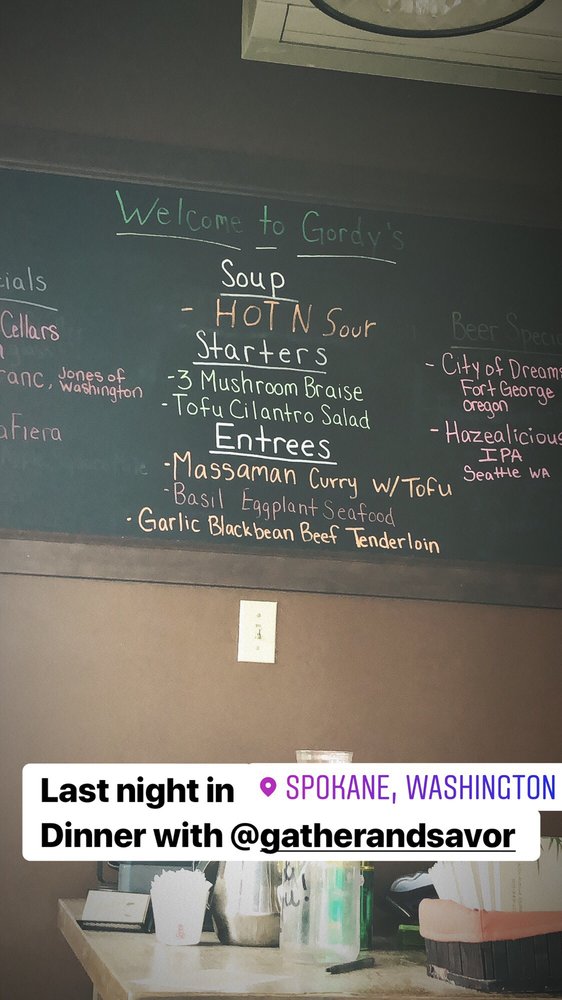 Welcome to Gordy's
cials
Cellars
ranc, Jones of
Washington
aFiera
Soup
- HOT N Sour
Starters
-3 Mushroom Braise
-Tofu Cilantro Salad
Entrees
-Massaman Curry w/Tofu
-Basil Eggplant Seafood
- Garlic Blackbean Beef Tenderloin
Beer Speci
- City of Dreams
Fort George
Oregon
- Hazealicious
IPA
Seattle WA
Last night in SPOKANE, WASHINGTON
Dinner with @gatherandsavor